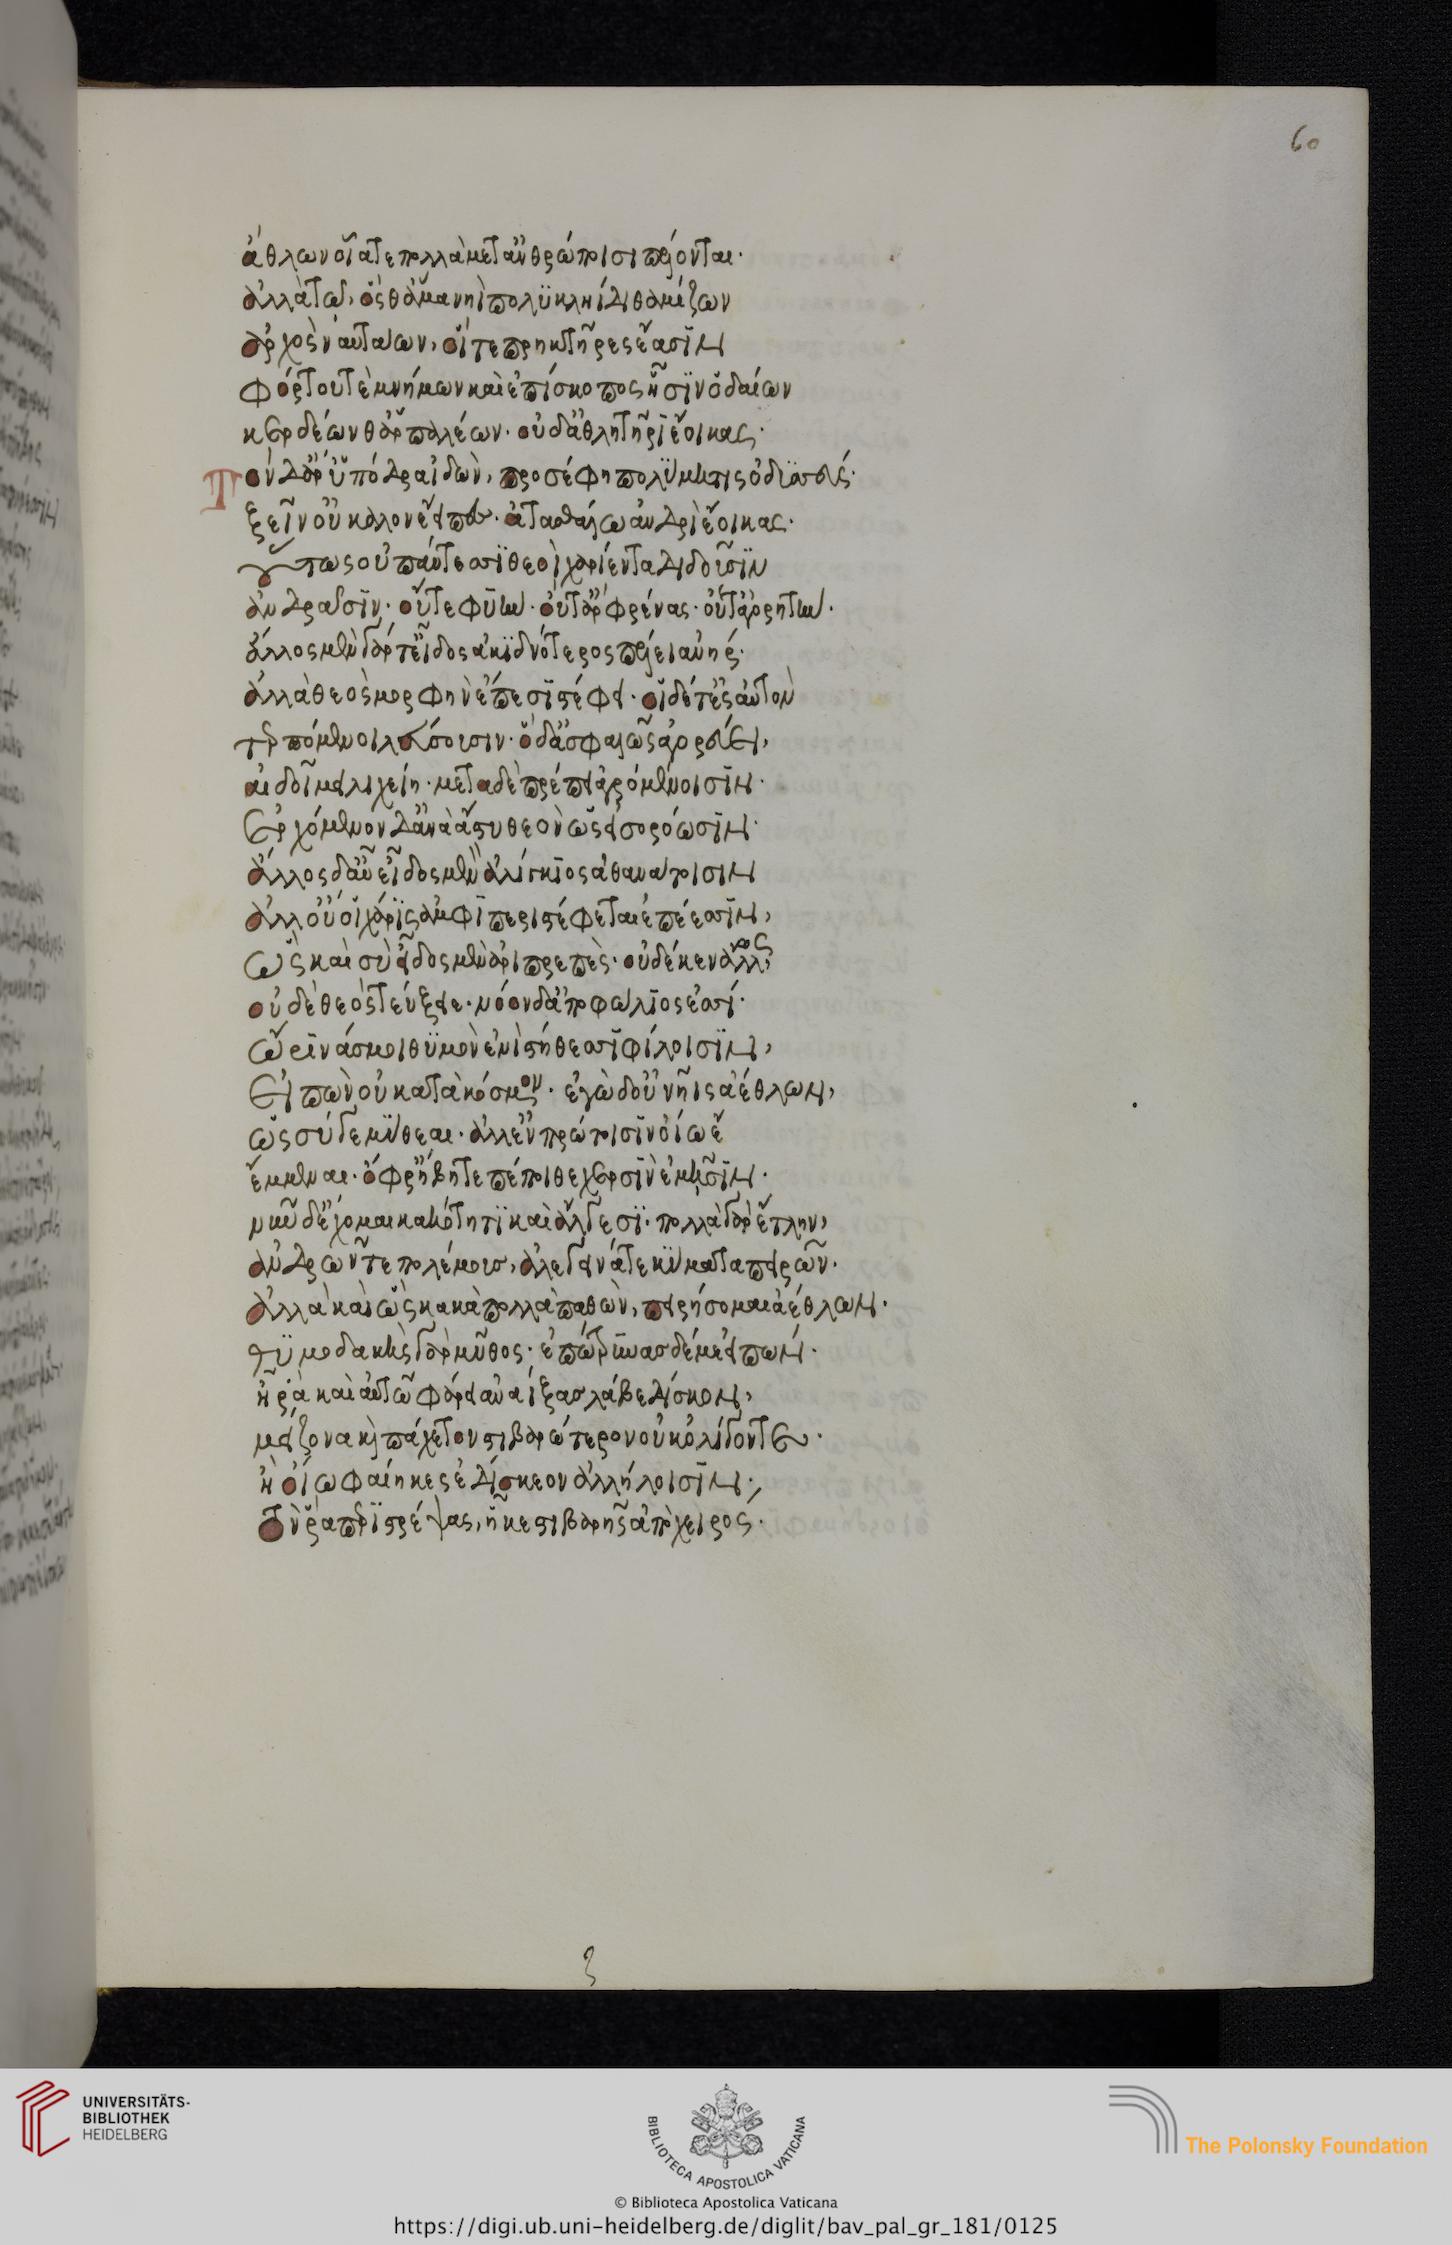 60
ἄθλων οἷά τε πολλὰ μετ' ἀνθρώποισι πέλονται·
ἀλλὰ τῶ, ὅς θ' ἅμα νηῒ πολυκλήϊδι θαμίζων
ἀρχὸς ναυτάων, οἵ τε πρηκτῆρες ἔασιν
φόρτου τὲ μνήμων καὶ ἐπίσκοπος ἦσιν ὁδαίων
κερδέων θ' ἁρπαλέων· οὐδ' ἀθλητῆρι ἔοικας·
Τὸν δ' ἄρ' ὑπόδρα ἰδὼν, προσέφη πολύμητις ὀδυσσεύς·
ξεῖν' οὐ καλὸν ἔειπες· ἀτασθάλω ἀνδρὶ ἔοικας·
οὕτως οὐ πάντεσσι θεοὶ χαρίεντα διδοῦσιν
ἀνδράσιν· οὔτε φυὴν· οὔτ' ἂρ φρένας· οὔτ' ἀγορητήν·
ἄλλος μὲν γάρ τ' εἶδος ἀκιδνότερος πέλει ἀνήρ·
ἀλλὰ θεὸς μορφὴν ἔπεσι στέφει· οἱ δέ τ' ἐς αὐτὸν
τερπόμενοι λεύσουσιν· ὁ δ' ἀσφαλέως ἀγορεύει,
αἰδοῖ μειλιχίη· μετὰ δὲ πρέπει ἀγρομένοισιν·
ἐρχόμενον δ' ἀνὰ ἄστυ θεὸν ὣς εἰσορόωσιν·
ἄλλος δ' αὖ εἶδος μὲν ἀλίγκιος ἀθανάτοισιν
ἀλλ' οὔ οἱ χάρις ἀμφιπεριστέφεται ἐπέεσσιν,
ὣς καὶ σὺ εἶδος μὲν ἀριπρεπὲς· οὐδέ κεν ἄλλως
οὐδὲ θεὸς τεύξειε· νόον δ' ἀποφώλιός ἐσσί·
ὤρινάς μοι θυμὸν ἐνὶ στήθεσσι φίλοισιν,
εἰπὼν οὐ κατὰ κόσμον· ἐγὼ δ' οὐ νῆις ἀέθλων,
ὡς σύ γε μυθεαι· ἀλλ' ἐν πρώτοισιν ὀΐω ἔ
ἔμμεναι· ὄφρ' ἥβη τε πέποιθε χερσίν ἐμῆσιν·
νῦν δ' ἔχομαι κακότητι καὶ ἄλγεσι· πολλὰ γὰρ ἔτλην,
ἀνδρῶν τε πολέμοις, ἀλεγεινά τε κύματα πείρων·
ἀλλὰ καὶ ὣς κακὰ πολλὰ παθὼν, πειρήσομαι ἀέθλων·
θυμοδακὴς γὰρ μῦθος· ἐπώτρυνας δέ με εἰπών·
ἦ ῥὰ καὶ αὐτῶ φάρει ἀναΐξας λάβε δίσκον,
μείζονα καὶ πάχετον στιβαρώτερον οὐκ ὀλίγον περ·
ἢ οἵω φαίηκες ἐδίσκεον ἀλλήλοισιν·
τόν ῥα περιστρέψας, ἧκε στιβαρῆς ἀπὸ χειρός·
UNIVERSITÄTS-
BIBLIOTHEK
HEIDELBERG
BIBLIOTECA APOSTOLICA VATICANA
© Biblioteca Apostolica Vaticana
The Polonsky Foundation
https://digi.ub.uni-heidelberg.de/diglit/bav_pal_gr_181/0125